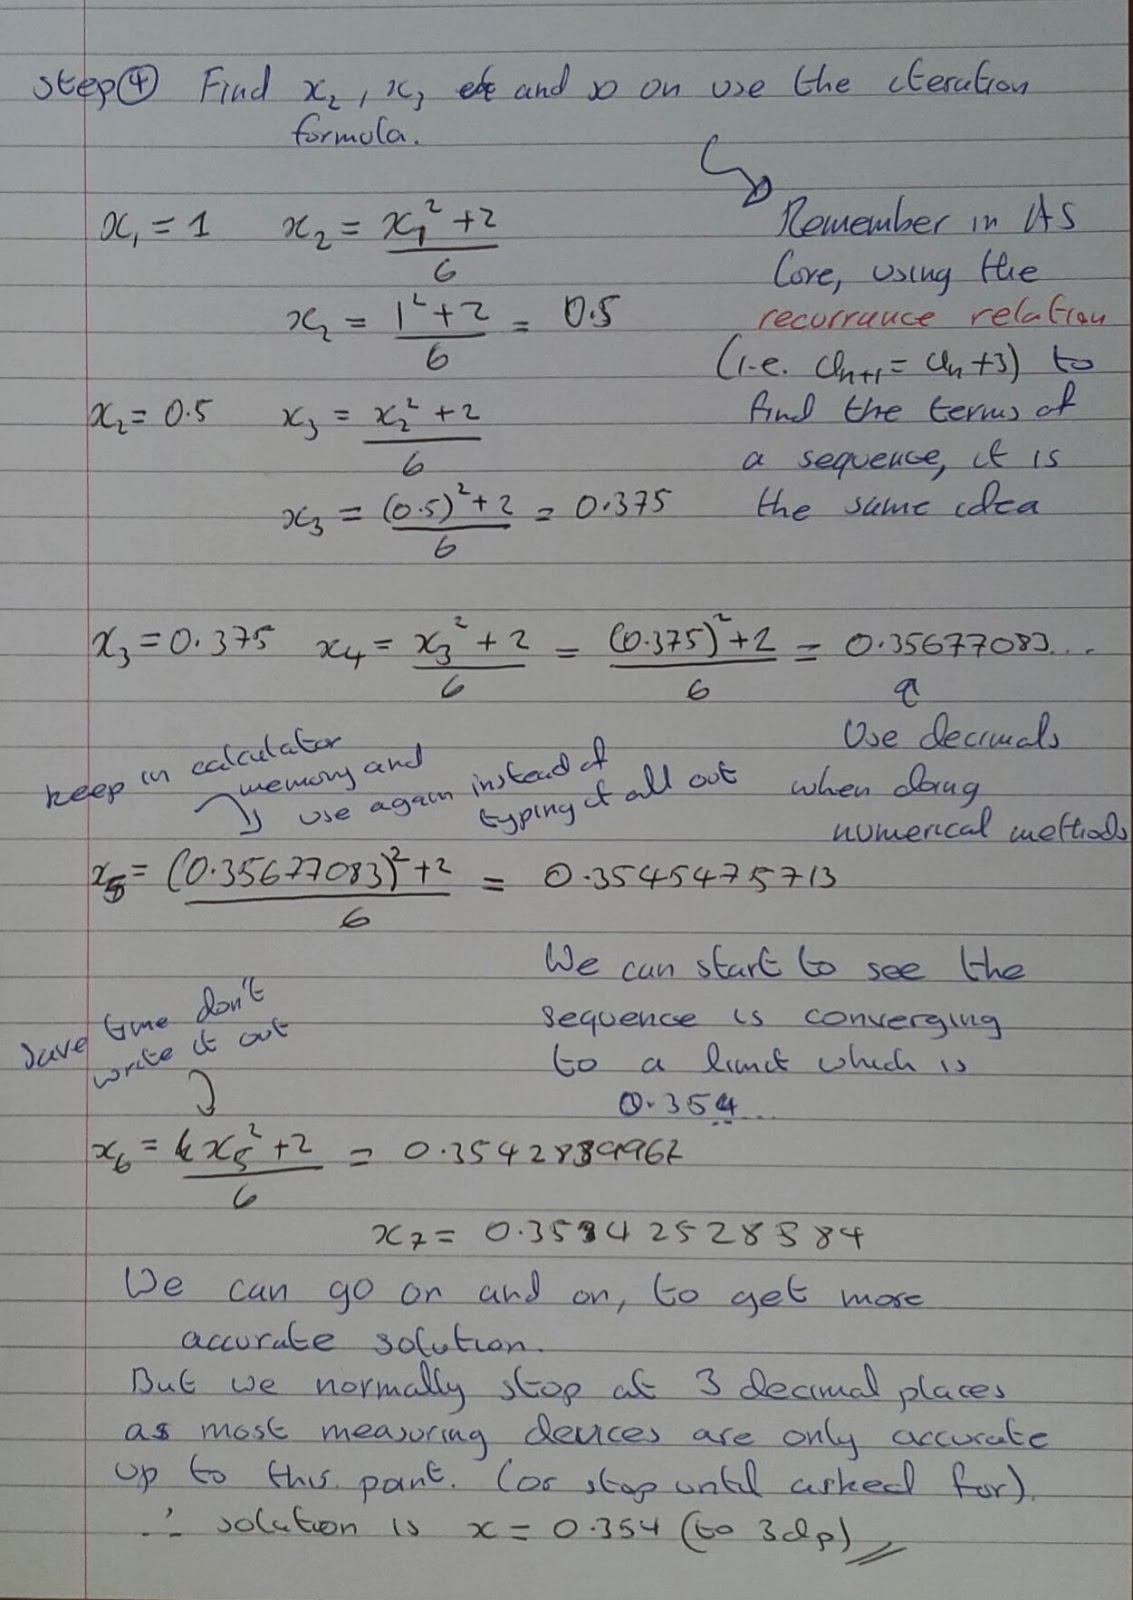 step ④ Find x₂, x₃ etc and so on use the iteration
formula.
x₁ = 1 x₂ = (x₁² + 2)/6
x₂ = (1² + 2)/6 = 0.5
x₂ = 0.5 x₃ = (x₂² + 2)/6
x₃ = ((0.5)² + 2)/6 = 0.375
Remember in AS
Core, using the
recurrance relation
(i.e. Uₙ₊₁ = Uₙ + 3) to
find the terms of
a sequence, it is
the same idea
x₃ = 0.375 x₄ = (x₃² + 2)/6 = ((0.375)² + 2)/6 = 0.35677083...
Use decimals
when doing
numerical methods
keep in calculator
memory and
use again instead of
typing it all out
x₅ = ((0.35677083)² + 2)/6 = 0.3545475713
We can start to see the
sequence is converging
to a limit which is
0.354...
Save time don't
write it out
x₆ = (x₅² + 2)/6 =
x₇ =
We can go on and on, to get more
accurate solution.
But we normally stop at 3 decimal places
as most measuring devices are only accurate
up to this point. (or stop until asked for).
∴ solution is x = 0.354 (to 3dp)